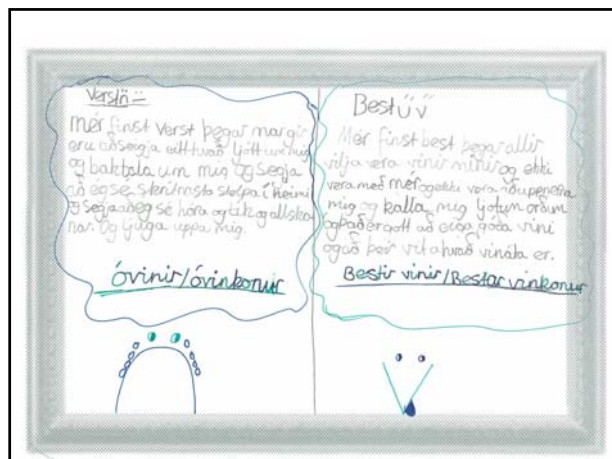 Verst
Mér finst verst þegar margir
eru að seigja eitthvað ljótt um mig
og baktala um mig og segja
að eg sé heimsta stelpa í heimi
og segja að eg sé hóra og tík og allska
nar. og ljúga uppa mig.
óvinir/óvinkonur
Best
Mér finst best þegar allir
vilja vera vinir mínir og ekki
vera með mér og ekki vera
mig og kalla mig ljótum orðum
og það er gott að eiga góða vini
og að þeir vita hvað vinátta er.
Bestir vinir/Bestar vinkonur